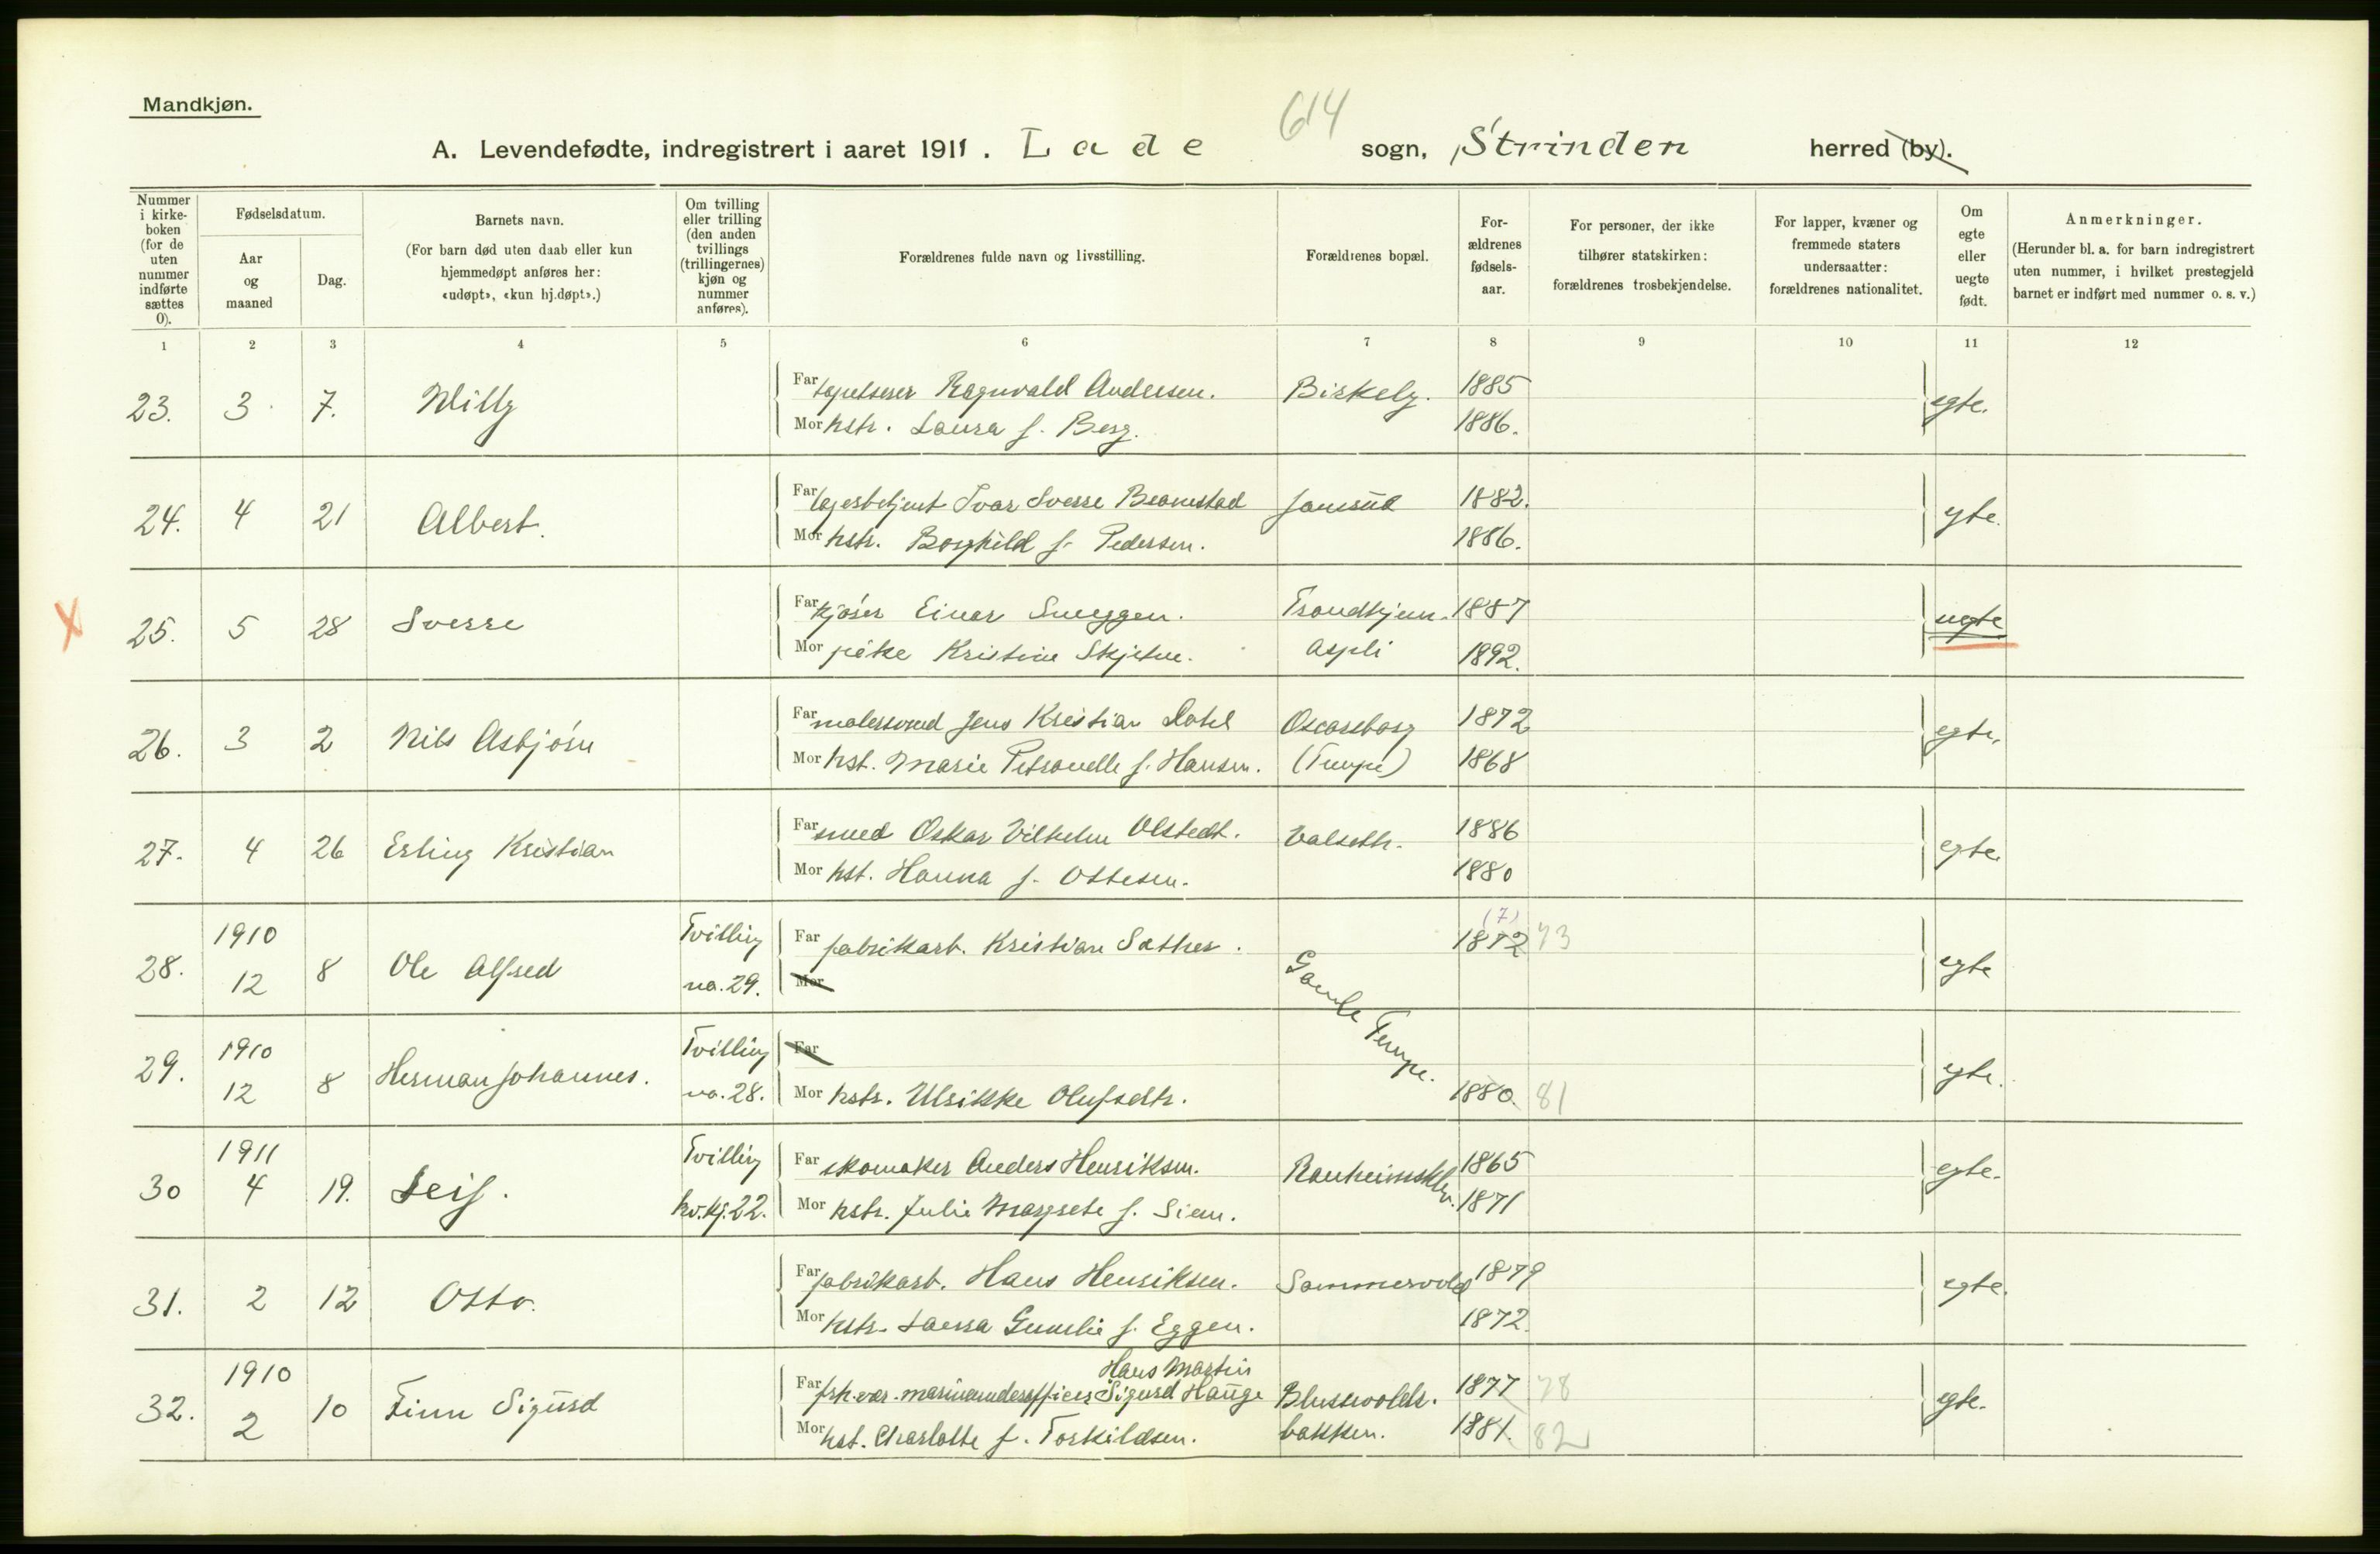 Mandkjøn.
614
A. Levendefødte, indregistrert i aaret 1911. Lade sogn, Strinden herred (by).
Nummer i kirkeboken (for de uten nummer indførte sættes 0).
Fødselsdatum.
Aar og maaned
Dag.
Barnets navn.
(For barn død uten daab eller kun hjemmedøpt anføres her: «udøpt», «kun hj.døpt».)
Om tvilling eller trilling (den anden tvillings (trillingernes) kjøn og nummer anføres).
Forældrenes fulde navn og livsstilling.
Forældrenes bopæl.
Forældrenes fødselsaar.
For personer, der ikke tilhører statskirken: forældrenes trosbekjendelse.
For lapper, kvæner og fremmede staters undersaatter: forældrenes nationalitet.
Om egte eller uegte født.
Anmerkninger.
(Herunder bl. a. for barn indregistrert uten nummer, i hvilket prestegjeld barnet er indført med nummer o. s. v.)
1 2 3 4 5 6 7 8 9 10 11 12
23. 3 7. Willy Far Ragnvald Andersen. Birkely. 1885 egte.
Mor hstr. Laura f. Berg. 1886.
24. 4 21 Albert. Far lagerbetjent Ivar Sverre 1882. egte.
Mor hstr. Borghild f. Pedersen. 1886.
X 25. 5 28 Sverre Far kjører Einar Sneggen. Trondhjem. 1887 uegte
Mor pike Kristine Skjetne. Aspli 1892.
26. 3 2 Nils Asbjørn Far malersvend Jens Kristian Dahl Oscarsborg 1872 egte.
Mor hst. Marie Petronelle f. Hansen. (Tempe) 1868
27. 4 26 Erling Kristian Far smed Oskar Vilhelm Olstedt. Valseth. 1886 egte.
Mor hst. Hanna f. Ottesen. 1880
28. 1910 12 8 Ole Alfred Tvilling no. 29. Far fabrikarb. Kristian Sæther. Gamle Tempe. (7) 1872 73 egte
Mor
29. 1910 12 8 Herman Johannes. Tvilling no. 28. Far egte.
Mor hstr. Ulrikke Olufsdtr. 1880. 81
30 1911 4 19. Leif. Tvilling kv.kj. 22. Far skomaker Anders Henriksen. 1865 egte.
Mor hstr. Julie Margrete f. Siem. 1871
31. 2 12 Otto. Far fabrikarb. Hans Henriksen. Sommervold 1879 egte.
Mor hstr. Laura f. Eggen. 1872.
32. 1910 2 10 Finn Sigurd Hans Martin
Far marineunderofficer Sigurd Hauge 1877 78 egte.
Mor hst. Charlotte f. Torkildsen. bakken. 1881. 82